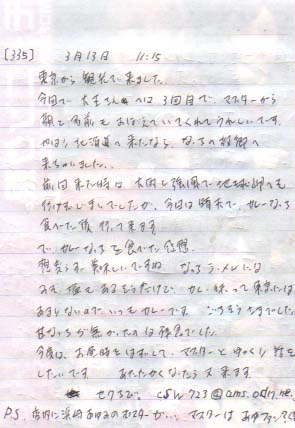 [335] 3月13日 11:15
東京から観光で来ました。
今回で 大王さんへは3回目で、マスターから
顔と名前も おぼえていてくれてうれしいです。
やはり北海道へ来たなら、なるとの故郷へ
来ちゃいました。
前回来た時は、大雨と強風で地球岬へも
行けませんでしたが、今回は晴天で、カレーなると
食べた後 行って来ます
で、カレーなるとを食べた感想
想像より 美味しいですね。ラーメンには
みそ、塩とあるようだけど、カレー味って東京には
あまりないのでいつもカレーです。ごちそうさまでした。
今度は、お食事をはずして、マスターとゆっくり話を
したいです あたたかくなったら又来ます。
csw723@ams.odn.ne.
P.S. 店内に浜崎あゆみのポスターが… マスターは あゆファン?